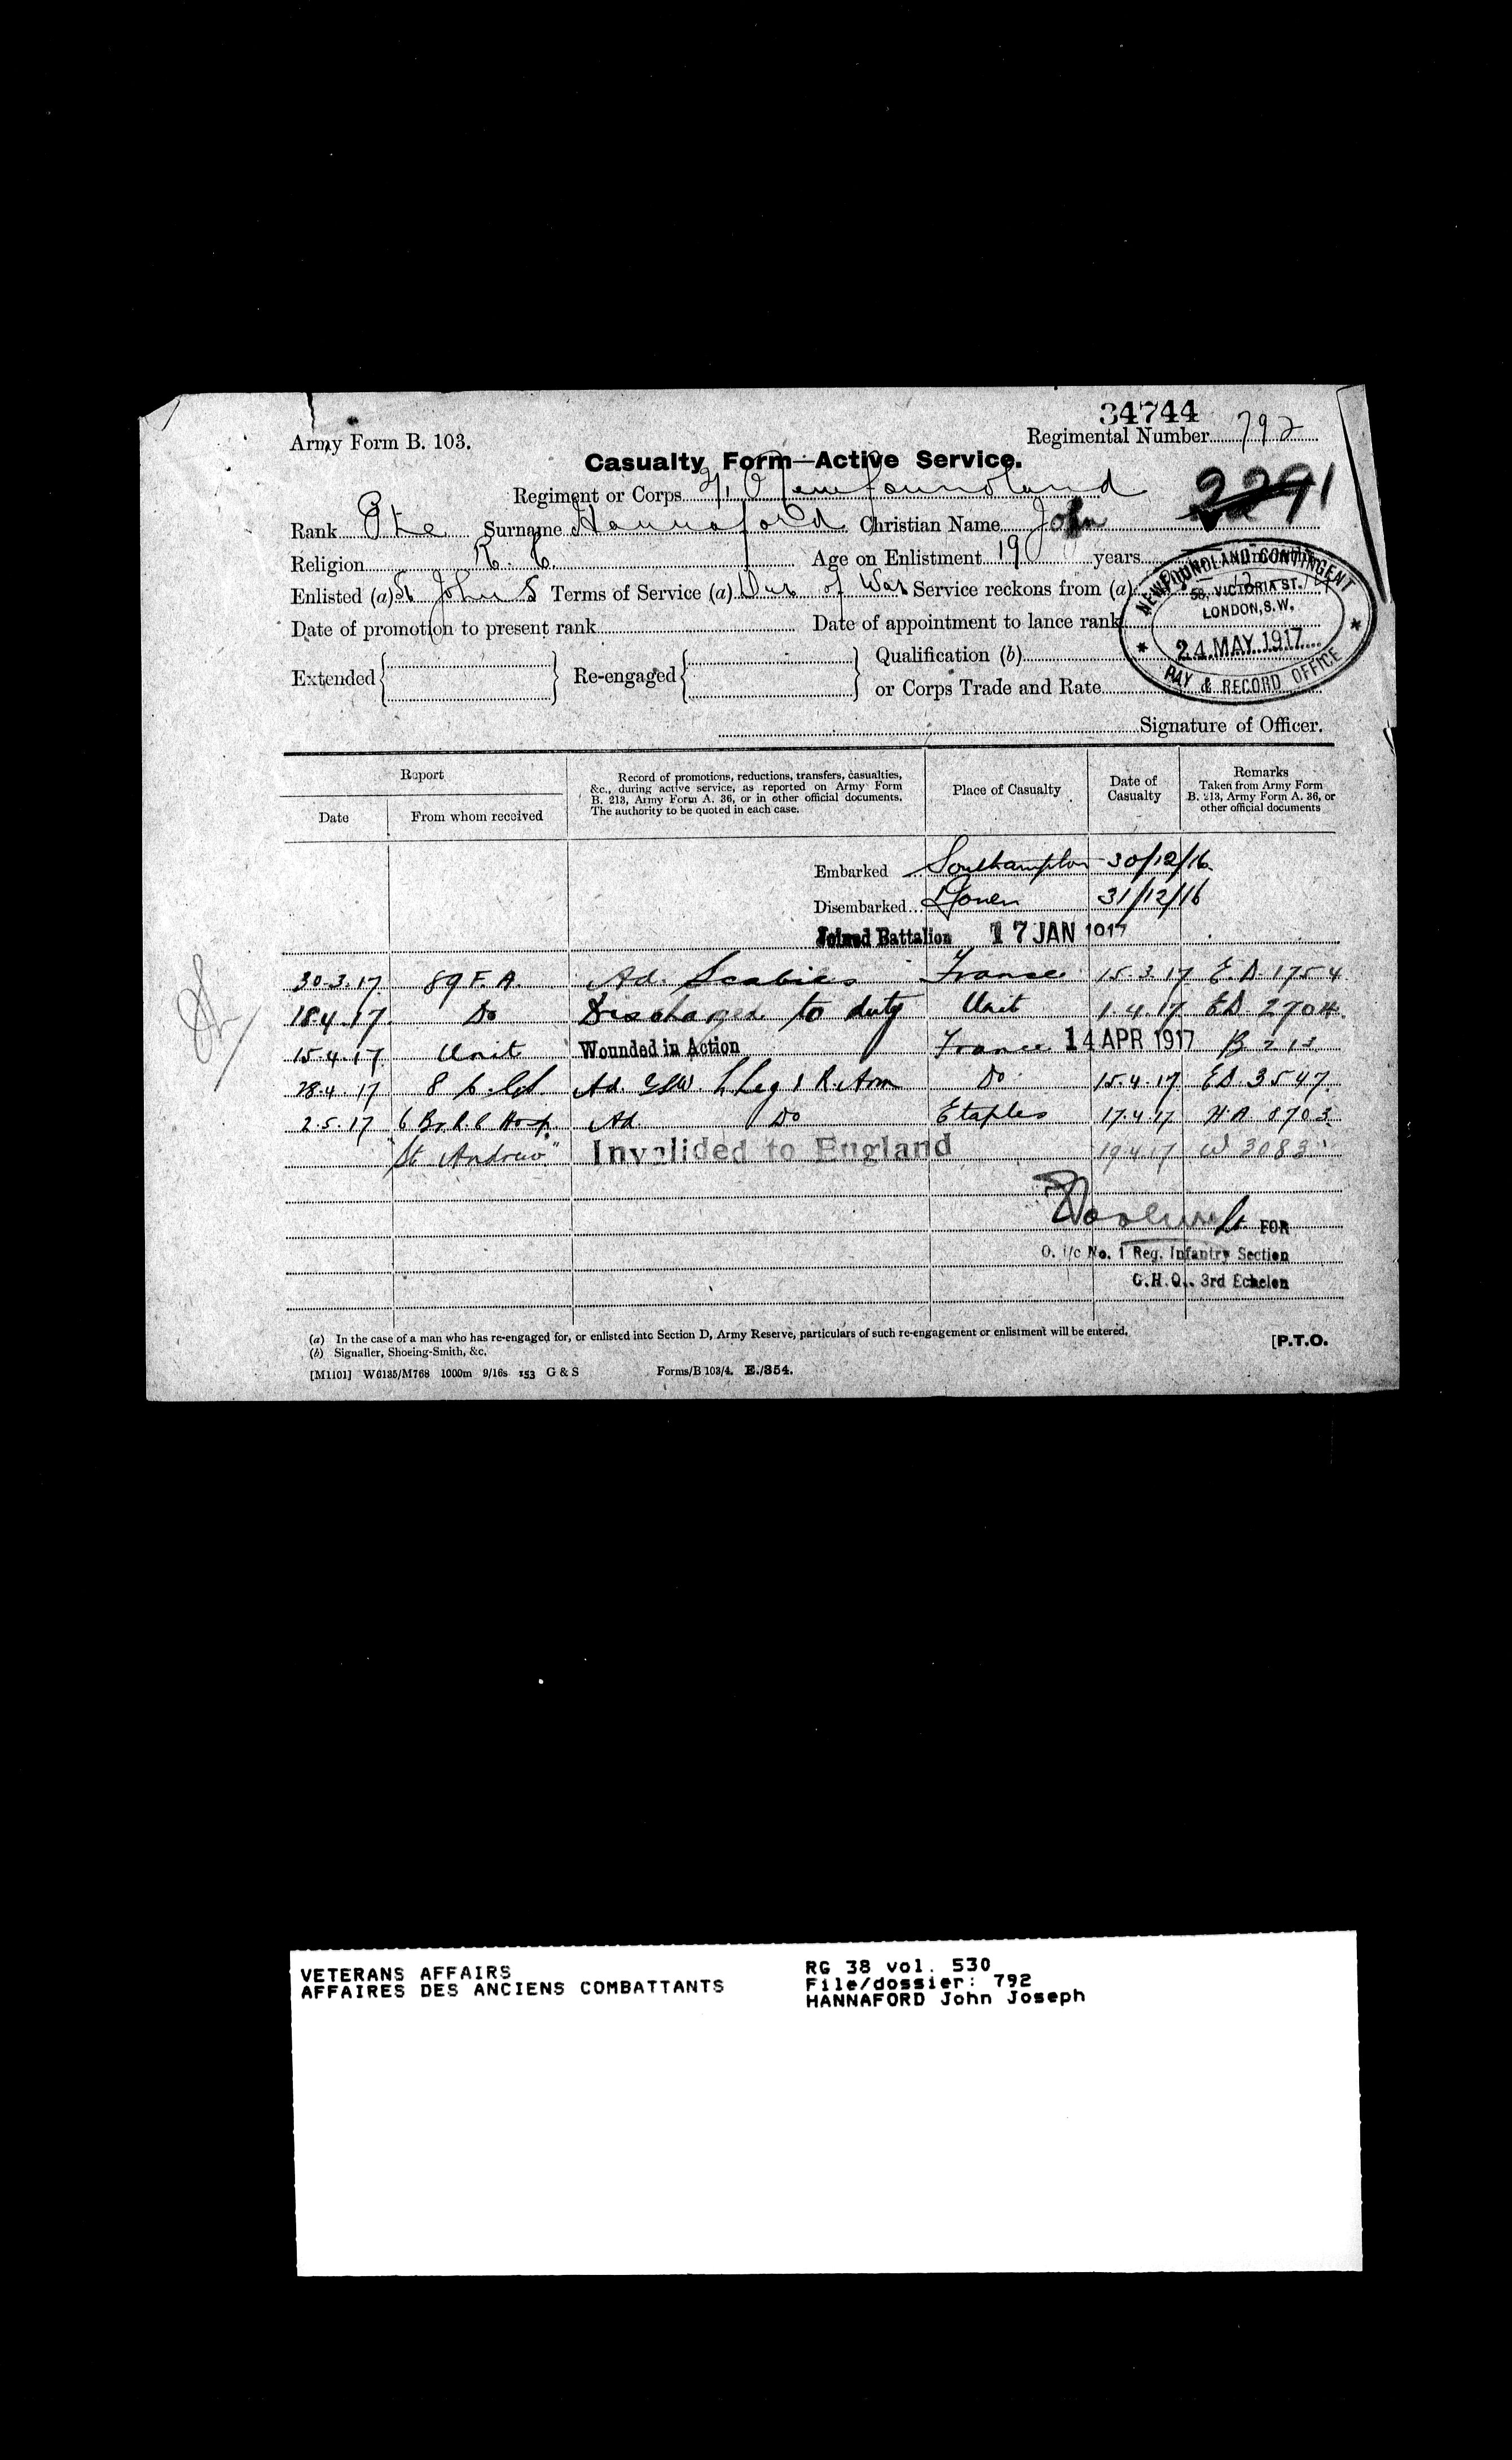 34744
Army Form B. 103.
Regimental Number 792
Casualty Form—Active Service.
2291
Regiment or Corps 2/1 Newfoundland
Rank Pte Surname Hannaford Christian Name John
Religion R. C. Age on Enlistment 19 years
Enlisted (a) St John S Terms of Service (a) Dur of War Service reckons from (a)
Date of promotion to present rank Date of appointment to lance rank
Extended Re-engaged Qualification (b)
or Corps Trade and Rate
NEWFOUNDLAND CONTINGENT
58, VICTORIA ST.
LONDON, S.W.
24 MAY 1917
PAY & RECORD OFFICE
Signature of Officer.
Report
Date
From whom received
Record of promotions, reductions, transfers, casualties,
&c., during active service, as reported on Army Form
B. 213, Army Form A. 36, or in other official documents.
The authority to be quoted in each case.
Place of Casualty
Date of
Casualty
Remarks
Taken from Army Form
B. 213, Army Form A. 36, or
other official documents
Embarked Southampton 30/12/16
Disembarked Rouen 31/12/16
Joined Battalion 17 JAN 1917
30-3.17 89 F.A. Ad. Scabies France 15.3.17 E.D. 1754
18.4.17 Do Discharged to duty Unit 1.4.17 ED 2704
15.4.17 Unit Wounded in Action France 14 APR 1917 B 213
28.4.17 8 Ad GSW. L Leg & R. Arm Do 15.4.17 ED 3547
2.5.17 6 Br. R. C Hosp. Ad Do Etaples 17.4.17 H.A. 8703
"St Andrew" Invalided to England 19.4.17 W 3083
Lt FOR
O. i/c No. 1 Reg. Infantry Section
G.H.Q. 3rd Echelon
(a) In the case of a man who has re-engaged for, or enlisted into Section D, Army Reserve, particulars of such re-engagement or enlistment will be entered.
(b) Signaller, Shoeing-Smith, &c.
[P.T.O.
[M1101] W6135/M768 1000m 9/16s 153 G & S Forms/B 103/4. E./354.
VETERANS AFFAIRS
AFFAIRES DES ANCIENS COMBATTANTS
RG 38 vol. 530
File/dossier: 792
HANNAFORD John Joseph